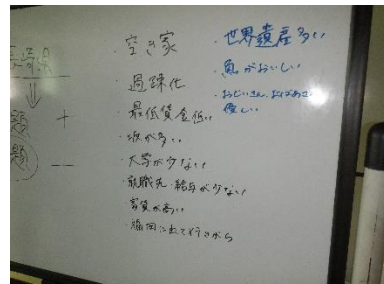 長崎県
題 +
題 −
・空き家
・過疎化
・最低賃金低い
・坂が多い
・大学が少ない
・就職先・給与が少ない
・家賃が高い
・福岡に出て行きがち
・世界遺産多い
・魚がおいしい
・おじいさん、おばあさん
優しい